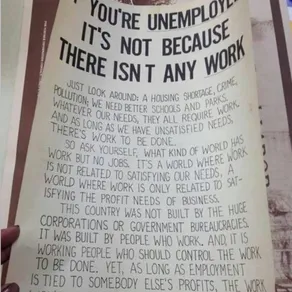 YOU'RE UNEMPLOYE
IT'S NOT BECAUSE
THERE ISN'T ANY WORK
JUST LOOK AROUND: A HOUSING SHORTAGE, CRIME,
POLLUTION; WE NEED BETTER SCHOOLS AND PARKS.
WHATEVER OUR NEEDS, THEY ALL REQUIRE WORK.
AND AS LONG AS WE HAVE UNSATISFIED NEEDS,
THERE'S WORK TO BE DONE.
SO ASK YOURSELF, WHAT KIND OF WORLD HAS
WORK BUT NO JOBS. IT'S A WORLD WHERE WORK
IS NOT RELATED TO SATISFYING OUR NEEDS, A
WORLD WHERE WORK IS ONLY RELATED TO SAT-
ISFYING THE PROFIT NEEDS OF BUSINESS.
THIS COUNTRY WAS NOT BUILT BY THE HUGE
CORPORATIONS OR GOVERNMENT BUREAUCRACIES.
IT WAS BUILT BY PEOPLE WHO WORK. AND, IT IS
WORKING PEOPLE WHO SHOULD CONTROL THE WORK
TO BE DONE. YET, AS LONG AS EMPLOYMENT
IS TIED TO SOMEBODY ELSE'S PROFITS, THE WORK